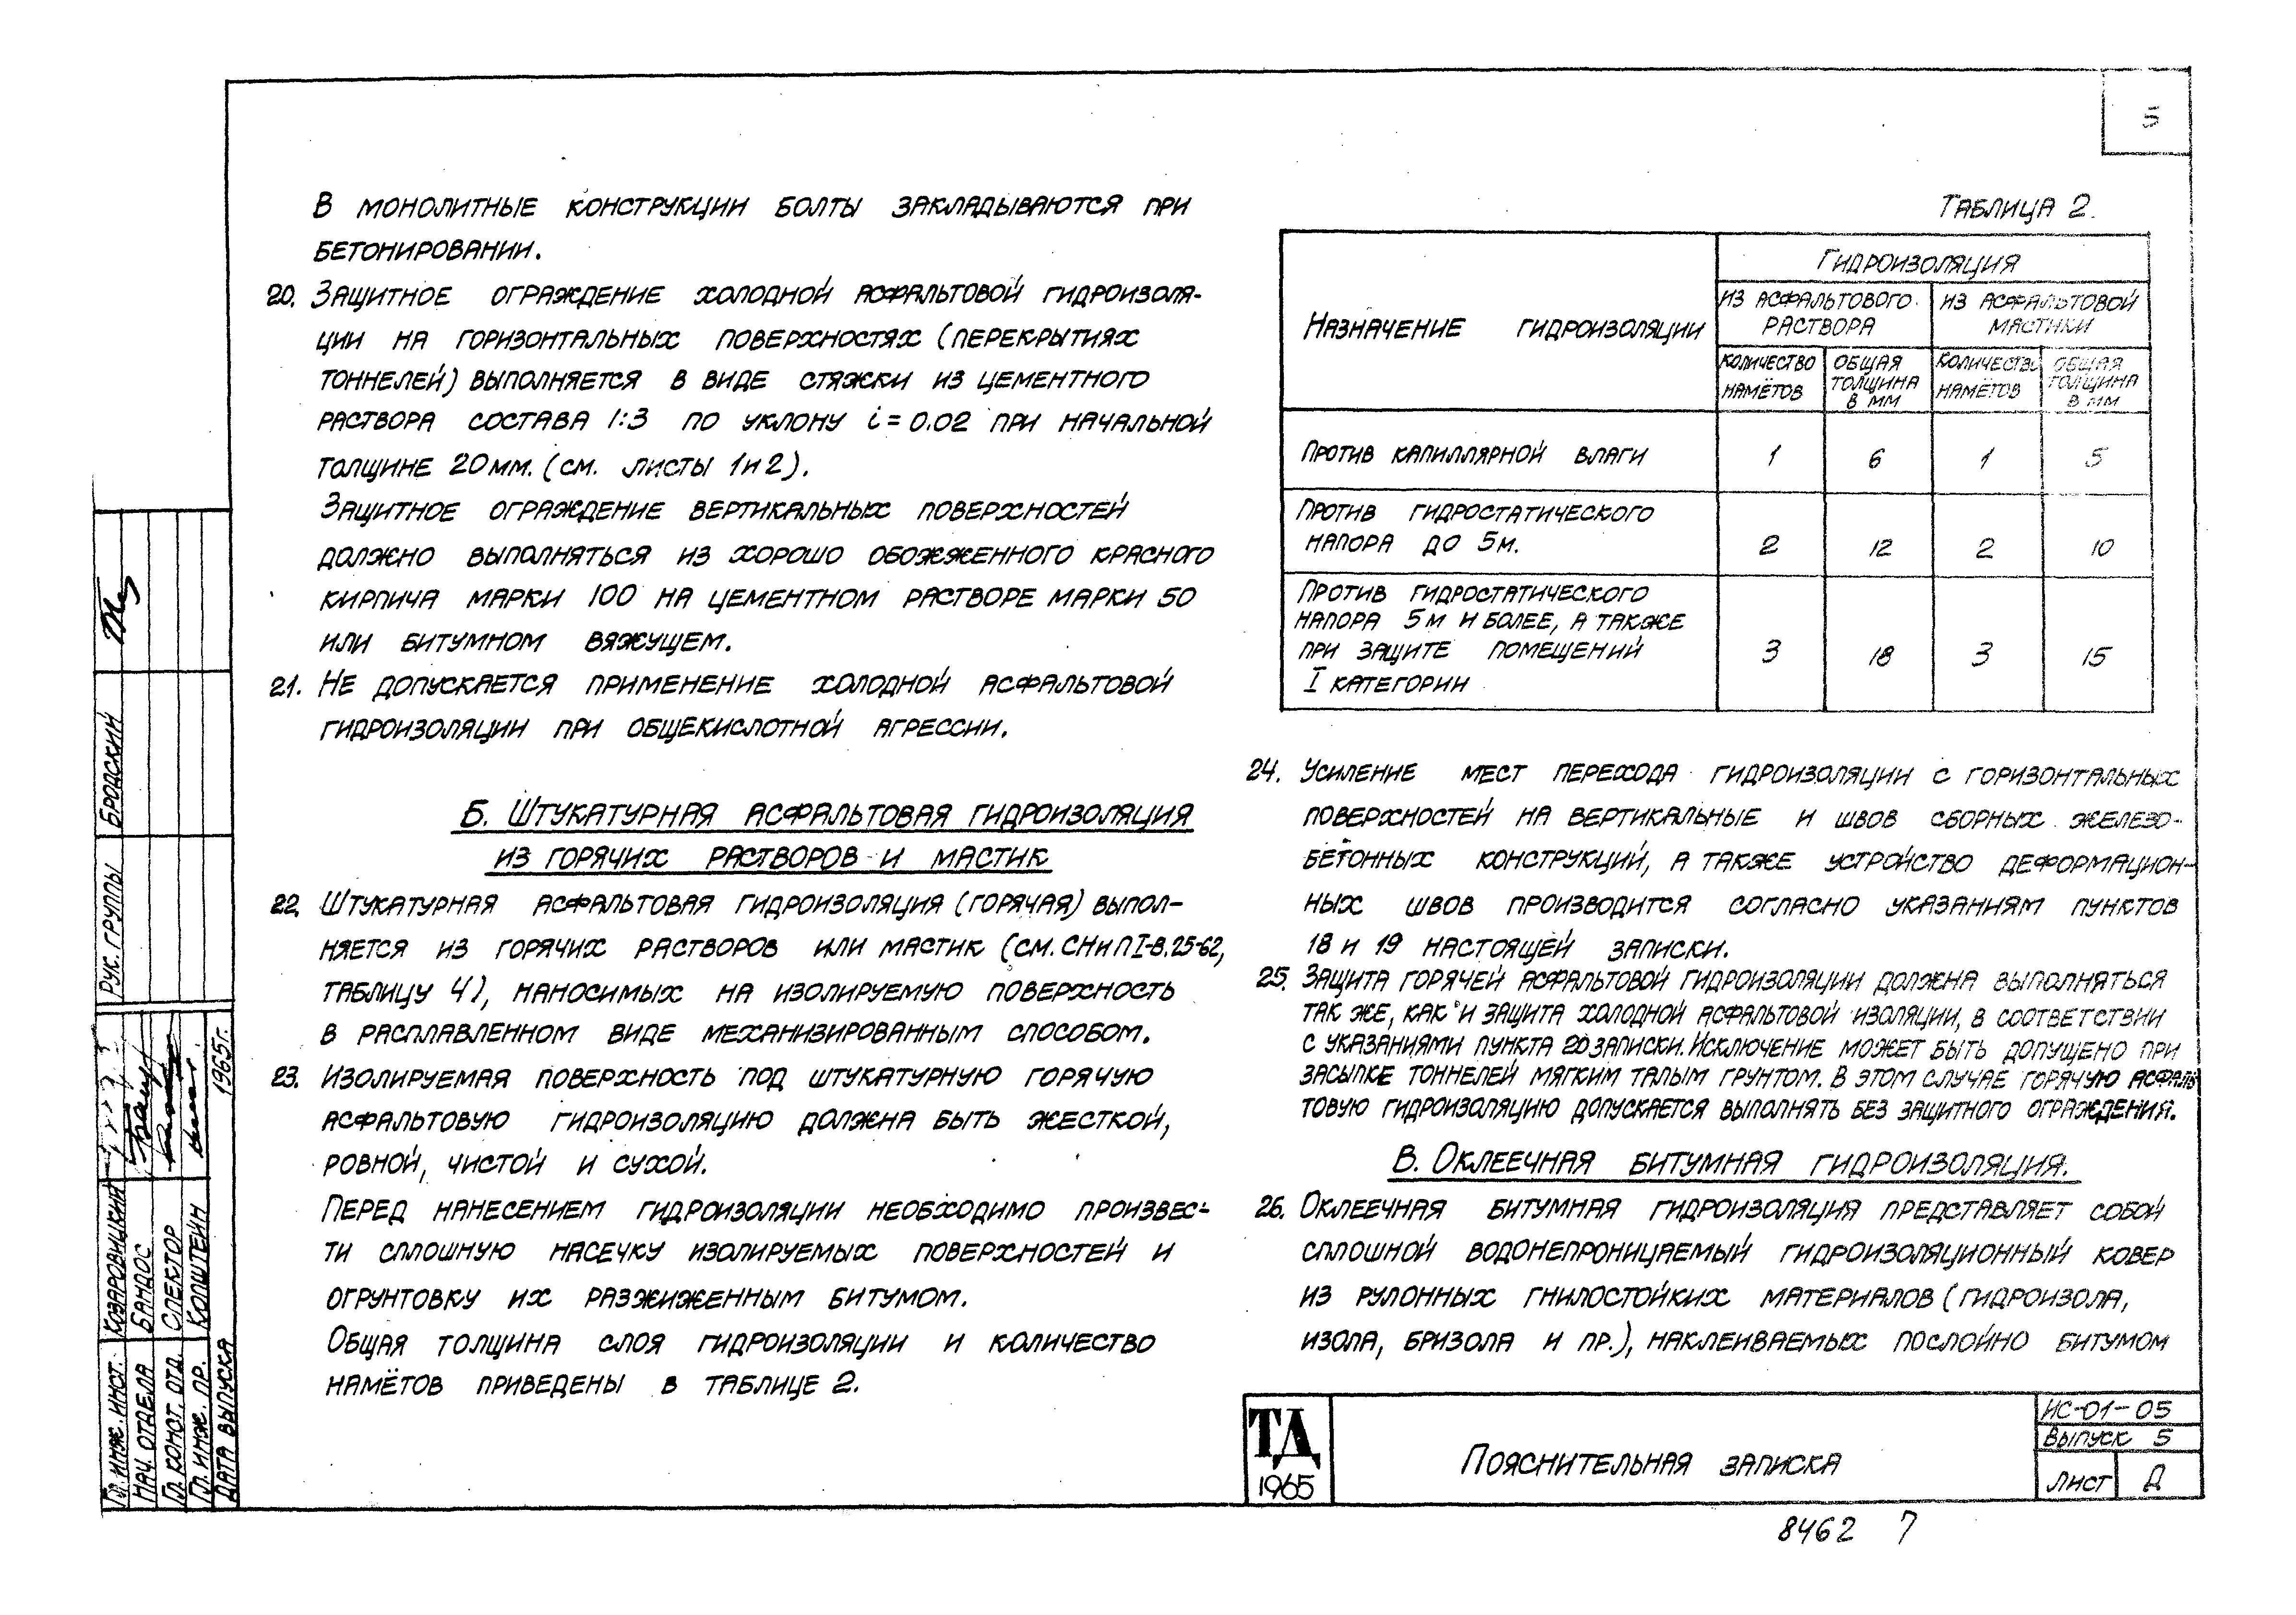 5
В монолитные конструкции болты закладываются при
бетонировании.
20. Защитное ограждение холодной асфальтовой гидроизоля-
ции на горизонтальных поверхностях (перекрытиях
тоннелей) выполняется в виде стяжки из цементного
раствора состава 1:3 по уклону i = 0.02 при начальной
толщине 20мм. (см. листы 1 и 2).
Защитное ограждение вертикальных поверхностей
должно выполняться из хорошо обожженного красного
кирпича марки 100 на цементном растворе марки 50
или битумном вяжущем.
21. Не допускается применение холодной асфальтовой
гидроизоляции при общекислотной агрессии.
Б. Штукатурная асфальтовая гидроизоляция
из горячих растворов и мастик
22. Штукатурная асфальтовая гидроизоляция (горячая) выпол-
няется из горячих растворов или мастик (см. СНиП I-В.25-62,
таблицу 4), наносимых на изолируемую поверхность
в расплавленном виде механизированным способом.
23. Изолируемая поверхность под штукатурную горячую
асфальтовую гидроизоляцию должна быть жесткой,
ровной, чистой и сухой.
Перед нанесением гидроизоляции необходимо произвес-
ти сплошную насечку изолируемых поверхностей и
огрунтовку их разжиженным битумом.
Общая толщина слоя гидроизоляции и количество
намётов приведены в таблице 2.
Таблица 2.
Назначение гидроизоляции
Гидроизоляция
из асфальтового
раствора
из асфальтовой
мастики
количество
намётов
общая
толщина
в мм
количество
намётов
общая
толщина
в мм
Против капиллярной влаги 1 6 1 5
Против гидростатического
напора до 5м. 2 12 2 10
Против гидростатического
напора 5м и более, а также
при защите помещений 3 18 3 15
I категории
24. Усиление мест перехода гидроизоляции с горизонтальных
поверхностей на вертикальные и швов сборных железо-
бетонных конструкций, а также устройство деформацион-
ных швов производится согласно указаниям пунктов
18 и 19 настоящей записки.
25. Защита горячей асфальтовой гидроизоляции должна выполняться
так же, как и защита холодной асфальтовой изоляции, в соответствии
с указаниями пункта 20 записки. Исключение может быть допущено при
засыпке тоннелей мягким талым грунтом. В этом случае горячую асфаль
товую гидроизоляцию допускается выполнять без защитного ограждения.
В. Оклеечная битумная гидроизоляция.
26. Оклеечная битумная гидроизоляция представляет собой
сплошной водонепроницаемый гидроизоляционный ковер
из рулонных гнилостойких материалов (гидроизола,
изола, бризола и пр.), наклеиваемых послойно битумом
Рук. группы Бродский
Гл. инж. инст. Козаровицкий
Нач. отдела Бандос
Гл. конст. отд. Спектор
Гл. инж. пр. Копштейн
Дата выпуска 1965г.
ТД
1965
Пояснительная записка
ИС-01-05
Выпуск 5
Лист Д
8462 7